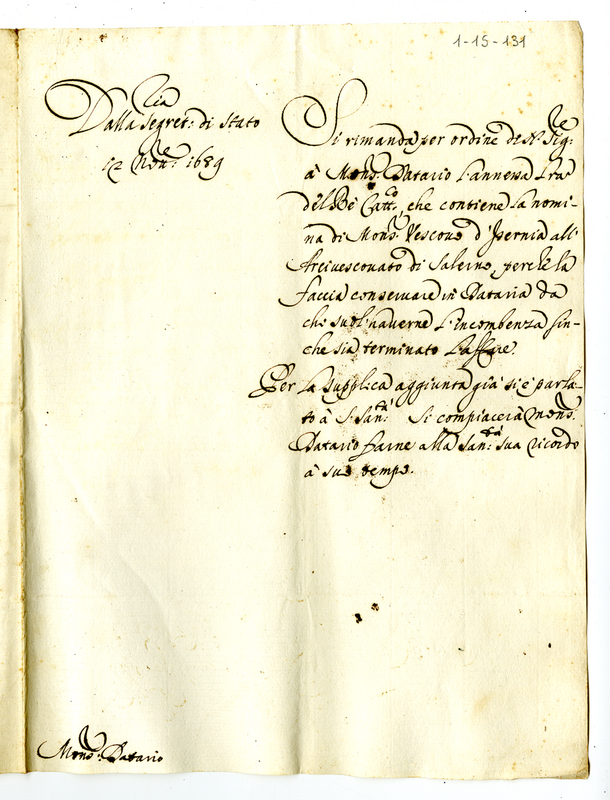 1-15-131
Dalla Segret:ria di Stato
12 Nov:re 1689
Si rimanda per ordine di N. Sig:re
à Mons:r Datario l'annessa l'ra
del Rè Catt:co, che contiene la nomi-
na di Mons:r Vescovo d'Isernia all'
Arcivescovato di Salerno, perche la
faccia conservare in Dataria da
che suol haverne l'incombenza fin-
che sia terminato l'affare.
Per la supplica aggiunta già si è parla-
to à S. San:tà Si compiacerà Mons:r
Datario farne alla San:tà sua ricordo
à suo tempo.
Mons:r Datario